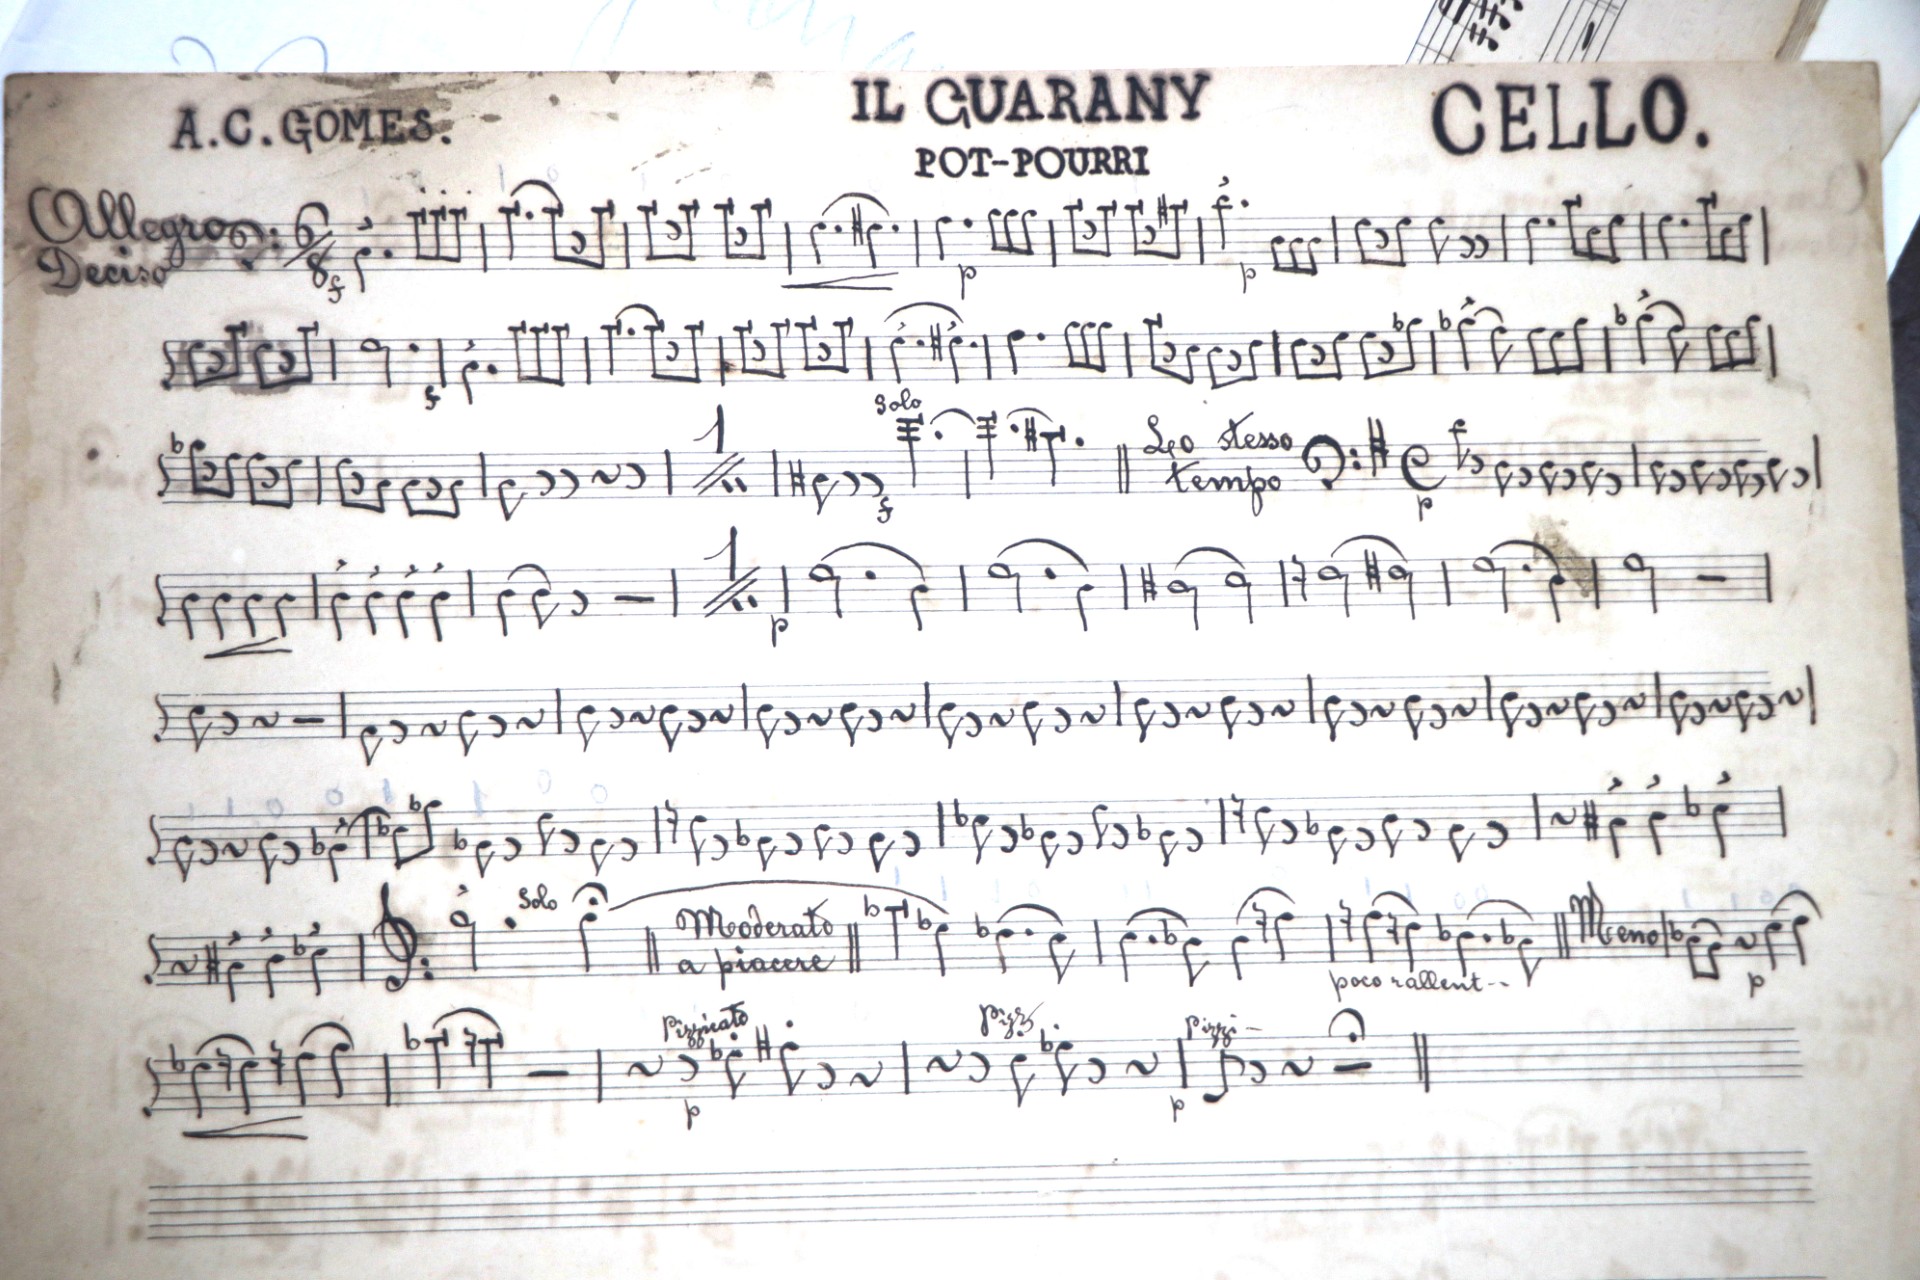 A.C. GOMES.
IL GUARANY
CELLO.
POT-POURRI
Allegro
Deciso
6/8
f
p
p
f
Solo
1
f
Lo stesso
tempo
p
1
p
Solo
Moderato
a piacere
poco rallent--
Meno
p
Pizzicato
Pizz
pizzi-
p
p